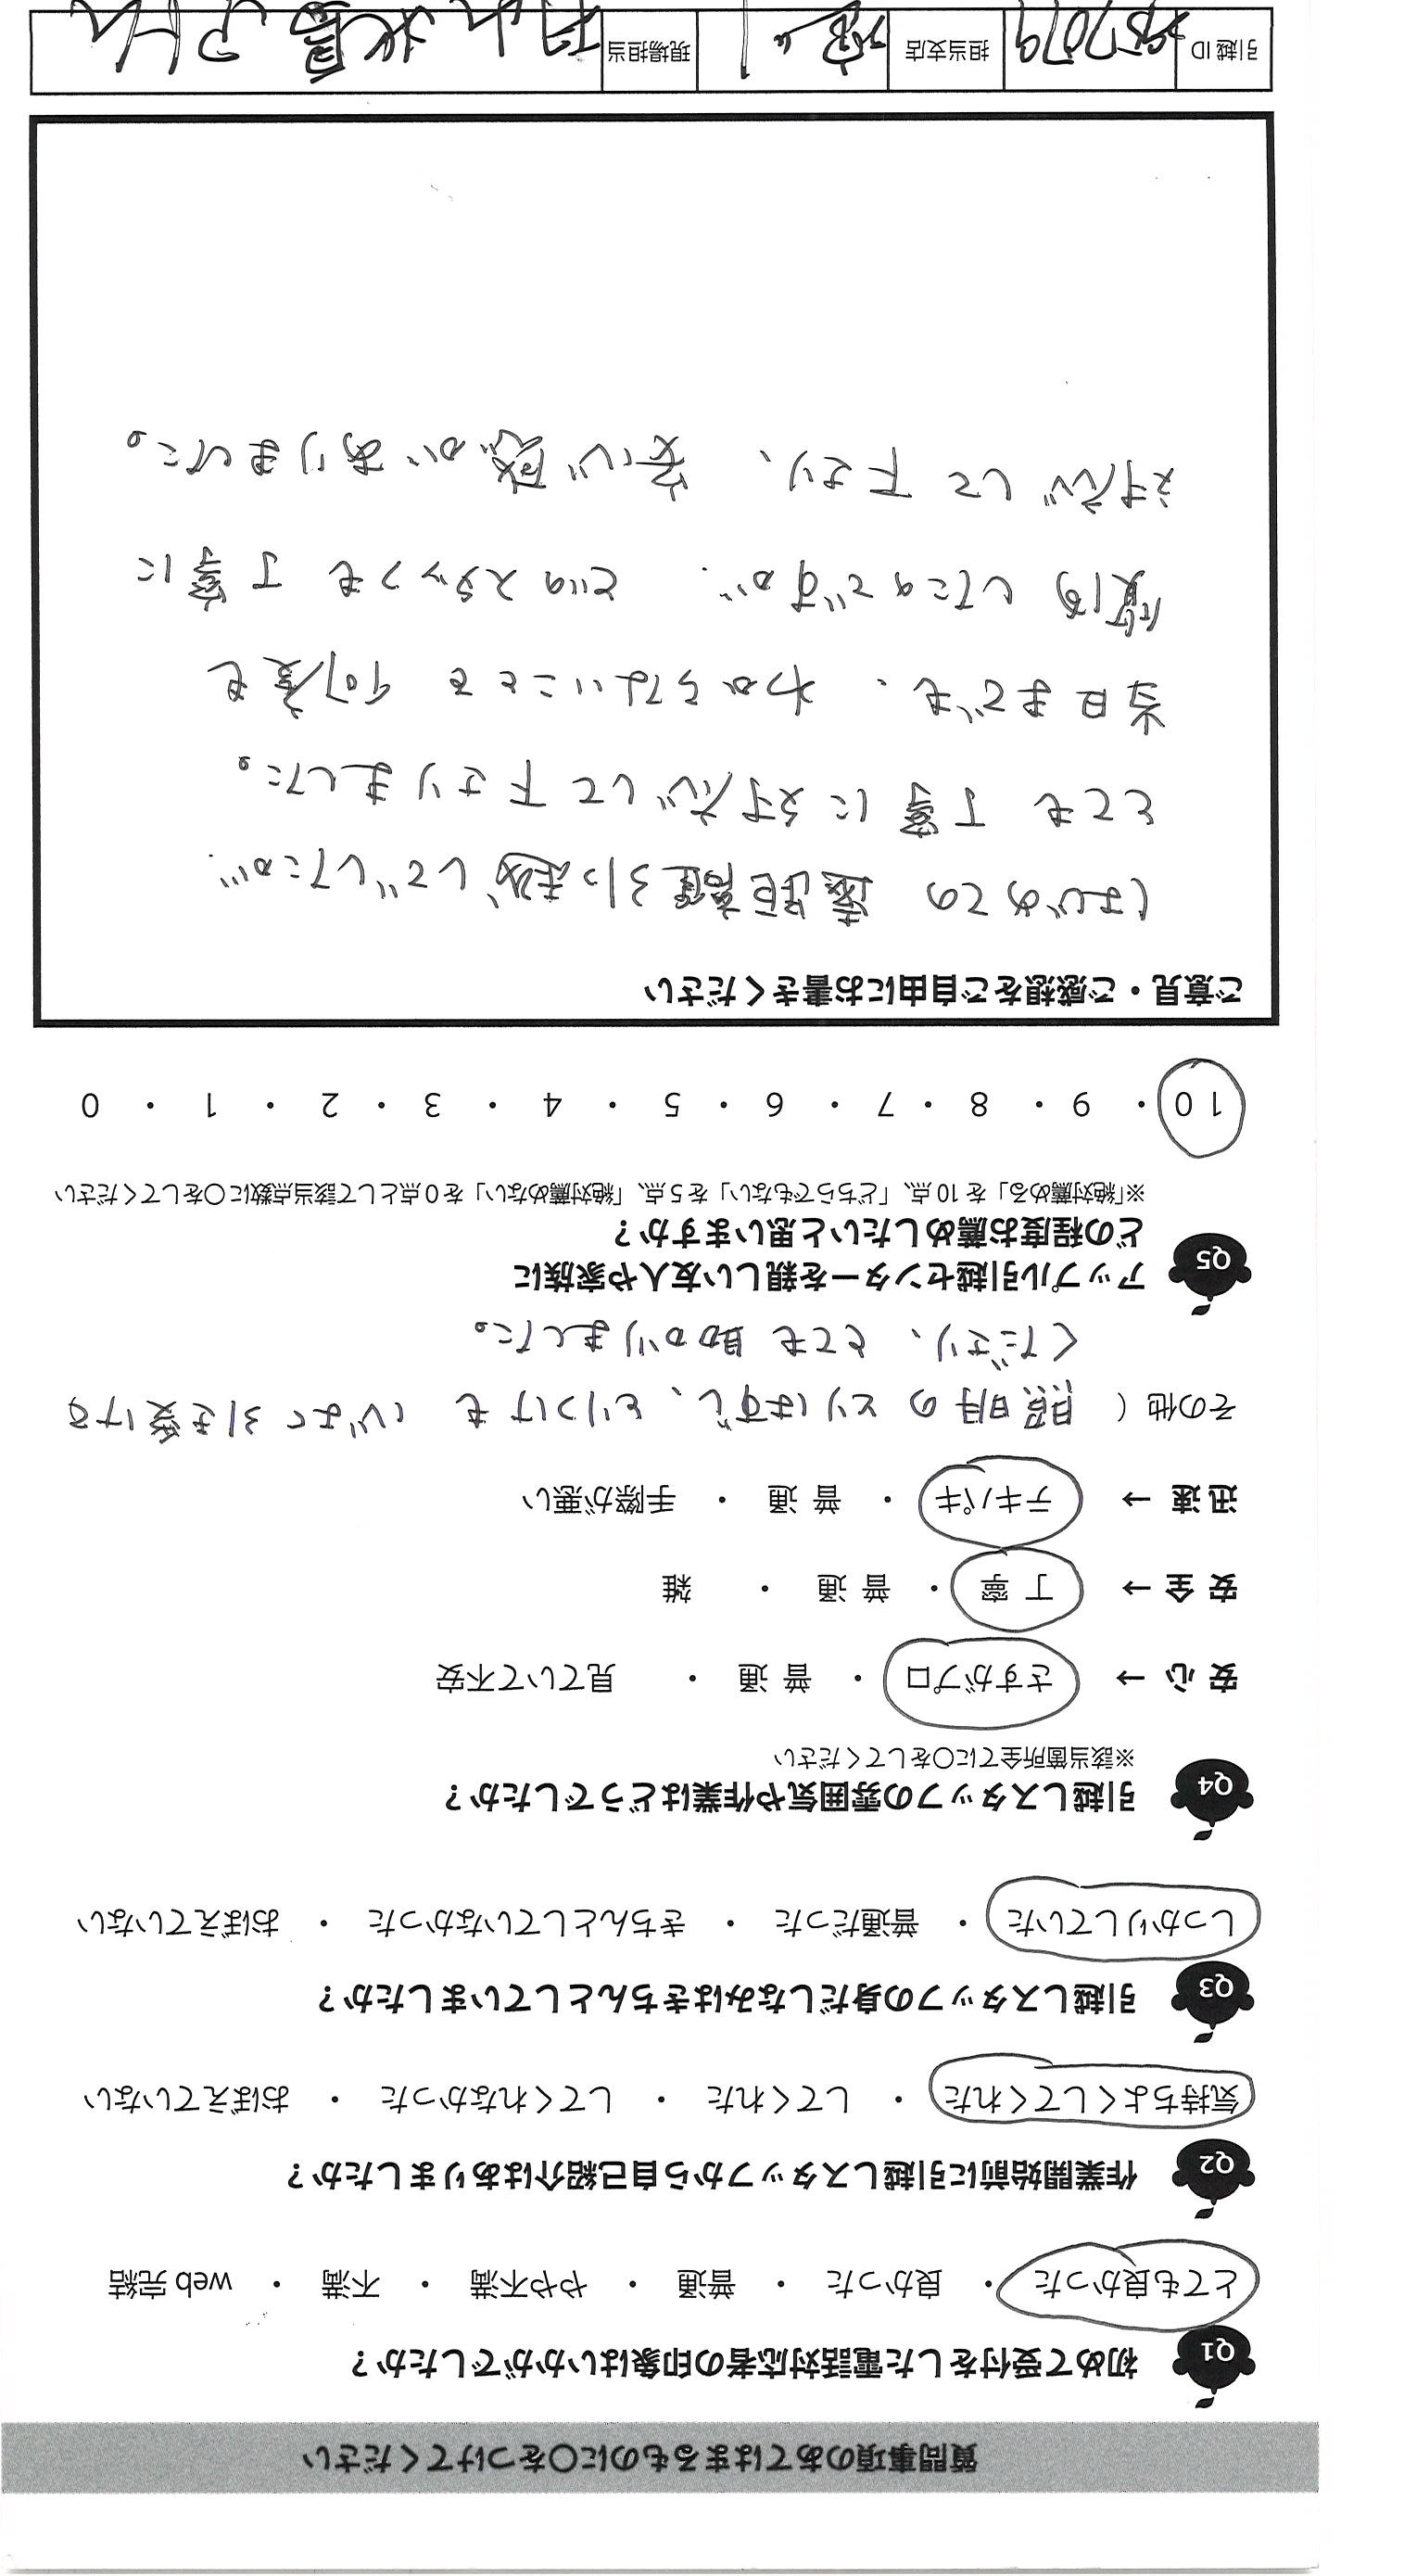 質問事項のあてはまるものに○をつけてください
Q1 初めて受付をした電話対応者の印象はいかがでしたか？
とても良かった ・ 良かった ・ 普通 ・ やや不満 ・ 不満 ・ web完結
Q2 作業開始前に引越しスタッフから自己紹介はありましたか？
気持ちよくしてくれた ・ してくれた ・ してくれなかった ・ おぼえていない
Q3 引越しスタッフの身だしなみはきちんとしていましたか？
しっかりしていた ・ 普通だった ・ きちんとしていなかった ・ おぼえていない
Q4 引越しスタッフの雰囲気や作業はどうでしたか？
※該当箇所全てに○をしてください
安心 → さすがプロ ・ 普通 ・ 見ていて不安
安全 → 丁寧 ・ 普通 ・ 雑
迅速 → テキパキ ・ 普通 ・ 手際が悪い
その他（ 照明のとりはずし、とりつけも 心よく引き受けて
くださり、とても助かりました。
Q5 アップル引越センターを親しい友人や家族に
どの程度お薦めしたいと思いますか？
※「絶対薦める」を10点、「どちらでもない」を5点、「絶対薦めない」を0点として該当点数に○をしてください
10 ・ 9 ・ 8 ・ 7 ・ 6 ・ 5 ・ 4 ・ 3 ・ 2 ・ 1 ・ 0
ご意見・ご感想をご自由にお書きください
はじめての 遠距離引っ越しでしたが、
とても丁寧に対応して下さりました。
当日までも、わからないことを 何度も
質問したのですが、どのスタッフも丁寧に
対応して下さり、安心感がありました。
引越ID 担当支店 現場担当